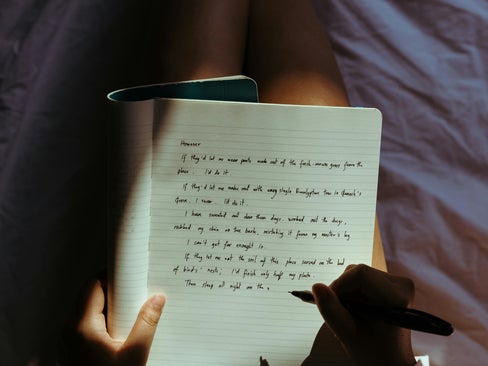 However
If they'd let me wear pants made out of the fresh-mown grass from the
place... I'd do it.
If they'd let me make out with every single Eucalyptus tree in
Grove, I swear I'd do it.
I have sweated out dew these days, worked out the dregs,
rubbed my chin on tree bark, mistaking it for my master's leg
I can't get far enough in.
If they let me eat the soil of this place served on the bed
of birds' nests, I'd finish only half my plate.
Then sleep all night on the